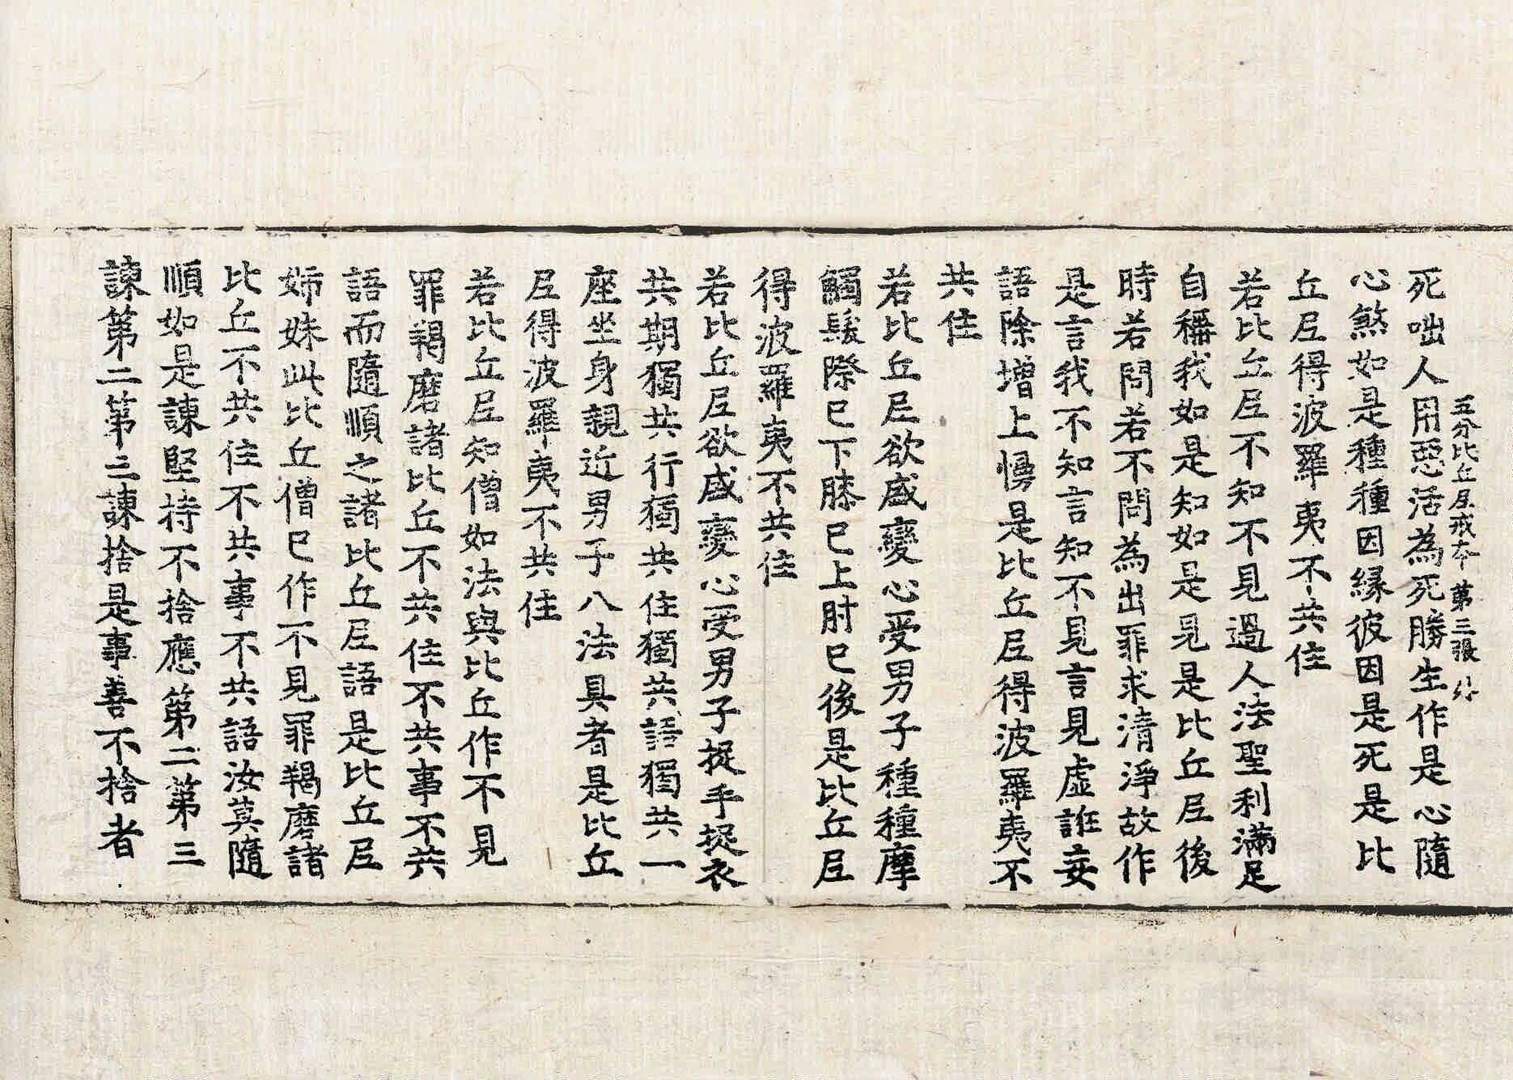 五分比丘尼戒本 第三張
死咄人用惡活為死勝生作是心隨
心煞如是種種因緣彼因是死是比
丘尼得波羅夷不共住
若比丘尼不知不見過人法聖利滿足
自稱我如是知如是見是比丘尼後
時若問若不問為出罪求清淨故作
是言我不知言知不見言見虛誑妄
語除增上慢是比丘尼得波羅夷不
共住
若比丘尼欲盛變心受男子種種摩
觸髮際已下膝已上肘已後是比丘尼
得波羅夷不共住
若比丘尼欲盛變心受男子捉手捉衣
共期獨共行獨共住獨共語獨共一
座坐身親近男子八法具者是比丘
尼得波羅夷不共住
若比丘尼知僧如法與比丘作不見
罪羯磨諸比丘不共住不共事不共
語而隨順之諸比丘尼語是比丘尼
姊妹此比丘僧已作不見罪羯磨諸
比丘不共住不共事不共語汝莫隨
順如是諫堅持不捨應第二第三
諫第二第三諫捨是事善不捨者